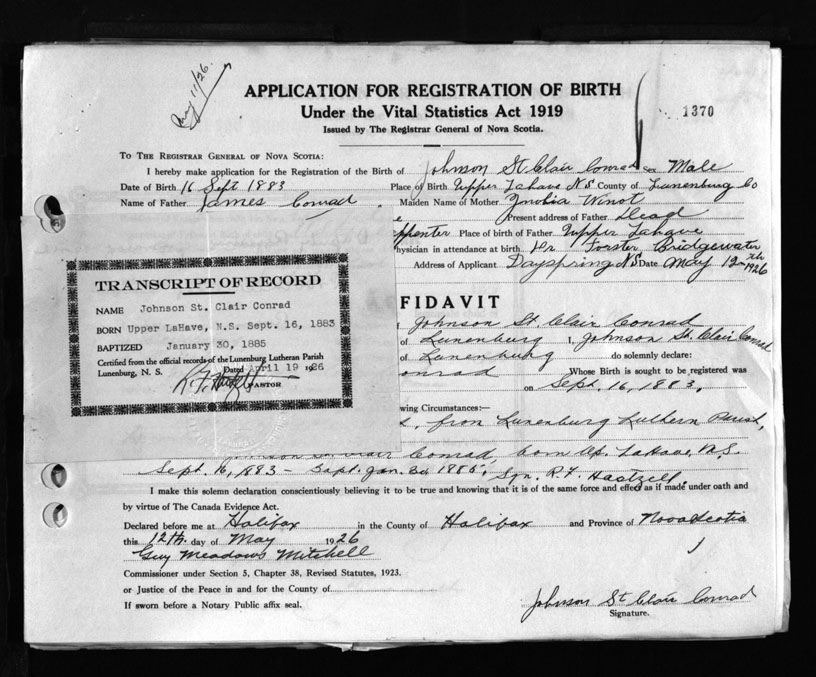 APPLICATION FOR REGISTRATION OF BIRTH
Under the Vital Statistics Act 1919
Issued by The Registrar General of Nova Scotia.
1370
To The Registrar General of Nova Scotia:
I hereby make application for the Registration of the Birth of Johnson St. Clair Conrad sex Male
Date of Birth 16 Sept 1883 Place of Birth Upper Lahave N.S. County of Lunenburg Co
Name of Father James Conrad Maiden Name of Mother
Present address of Father Dead
Place of birth of Father Upper Lahave
hysician in attendance at birth Dr Forster Bridgewater
Address of Applicant Dayspring N.S Date May 12th 1926
TRANSCRIPT OF RECORD
NAME Johnson St. Clair Conrad
BORN Upper LaHave, N.S. Sept. 16, 1883
BAPTIZED January 30, 1885
Certified from the official records of the Lunenburg Lutheran Parish
Lunenburg, N. S. Dated April 19 1926
PASTOR
FIDAVIT
Johnson St. Clair Conrad
of Lunenburg I, Johnson St. Clair Conrad
of Lunenburg do solemnly declare:
onrad Whose Birth is sought to be registered was
on Sept. 16, 1883.
wing Circumstances:—
from Lunenburg Luthern Parish,
Johnson St. Clair Conrad, born Up. LaHave, N.S.
Sept. 16, 1883 — Bapt. Jan. 30 1885, Sgn. R. F. Hartzell.
I make this solemn declaration conscientiously believing it to be true and knowing that it is of the same force and effect as if made under oath and
by virtue of The Canada Evidence Act.
Declared before me at Halifax in the County of Halifax and Province of Nova Scotia
this 12th. day of May 1926
Guy Meadows Mitchell
Commissioner under Section 5, Chapter 38, Revised Statutes, 1923.
or Justice of the Peace in and for the County of
If sworn before a Notary Public affix seal.
Johnson St Clair Conrad
Signature.